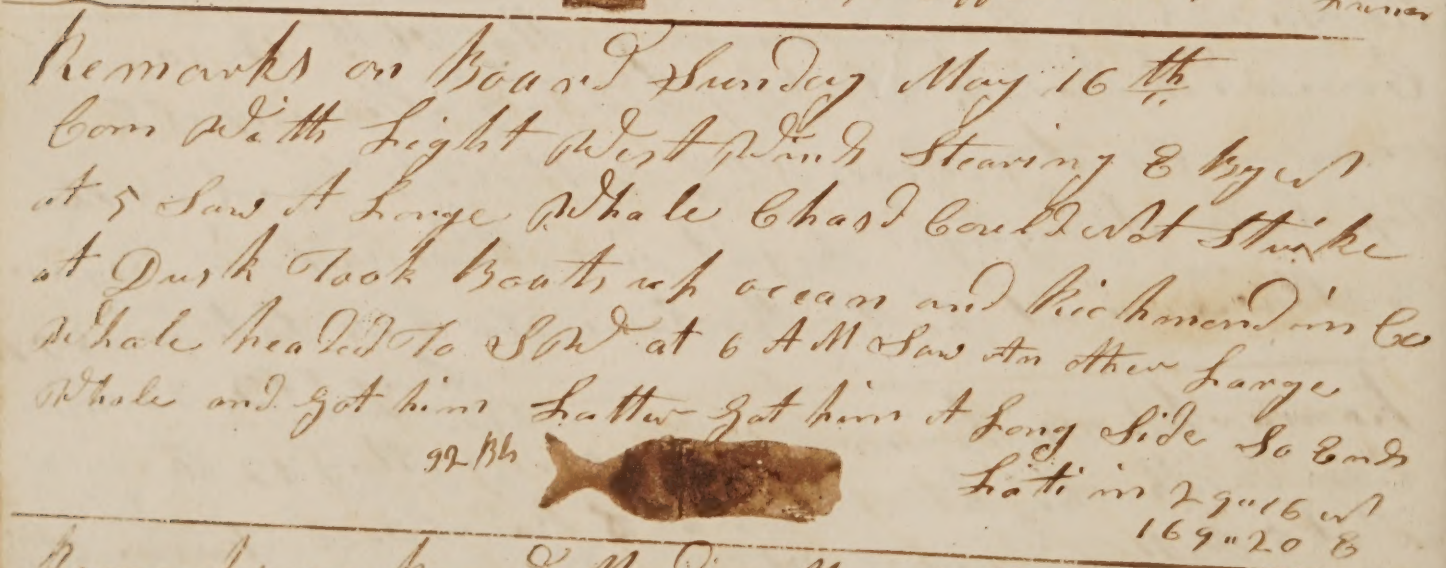 Remarks on Board Sunday May 16th
Com With Light West Winds Stearing E By N
at 5 Saw A Large Whale Chasd Could Not Strike
at Dusk Took Boats up ocean and Richmond in Co
Whale headed To SW at 6 AM Saw An other Large
Whale and got him Latter got him A Long Side So Ends
92 Bls
Lati in 29"16 N
169"20 E